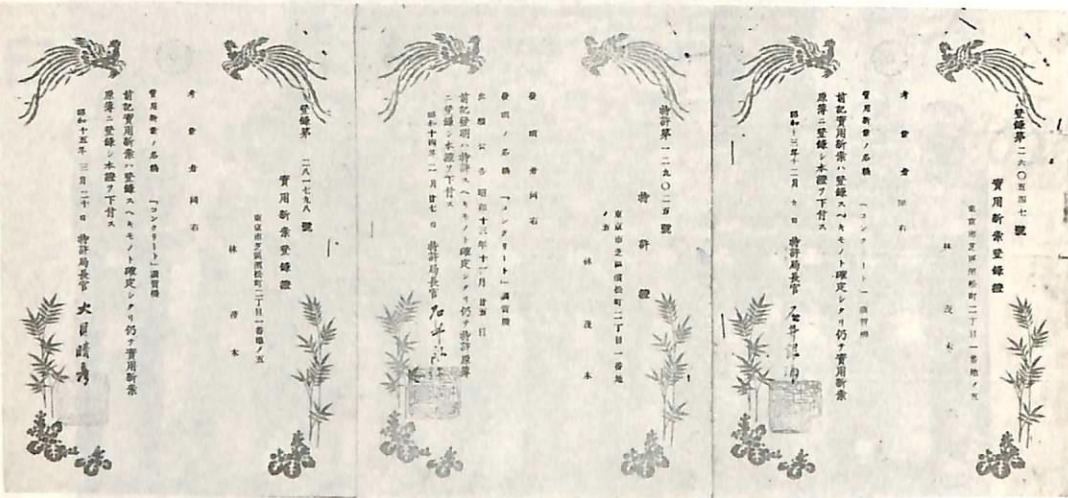 登錄第二六〇五四七號
實用新案登錄證
東京市芝區濱松町二丁目一番地ノ五
林 茂木
考案者 同右
實用新案ノ名稱 「コンクリート」
前記實用新案ハ登錄スヘキモノト確定シタリ仍テ實用新案
原簿ニ登錄シ本證ヲ下付ス
昭和十三年十二月 九日 特許局長官
特許第一二九〇二五號
特許證
東京市芝區濱松町二丁目一番地
ノ五
林 茂木
發明者 同右
發明ノ名稱 「コンクリート」調質機
出願公告 昭和十三年十一月廿五日
前記發明ハ特許スヘキモノト確定シタリ仍テ特許原簿
ニ登錄シ本證ヲ下付ス
昭和十四年二月廿七日 特許局長官
登錄第 二八一七九八 號
實用新案登錄證
東京市芝區濱松町二丁目一番地ノ五
林 茂木
考案者 同右
實用新案ノ名稱 「コンクリート」調質機
前記實用新案ハ登錄スヘキモノト確定シタリ仍テ實用新案
原簿ニ登錄シ本證ヲ下付ス
昭和十五年 三月二十日 特許局長官 大貝晴彥